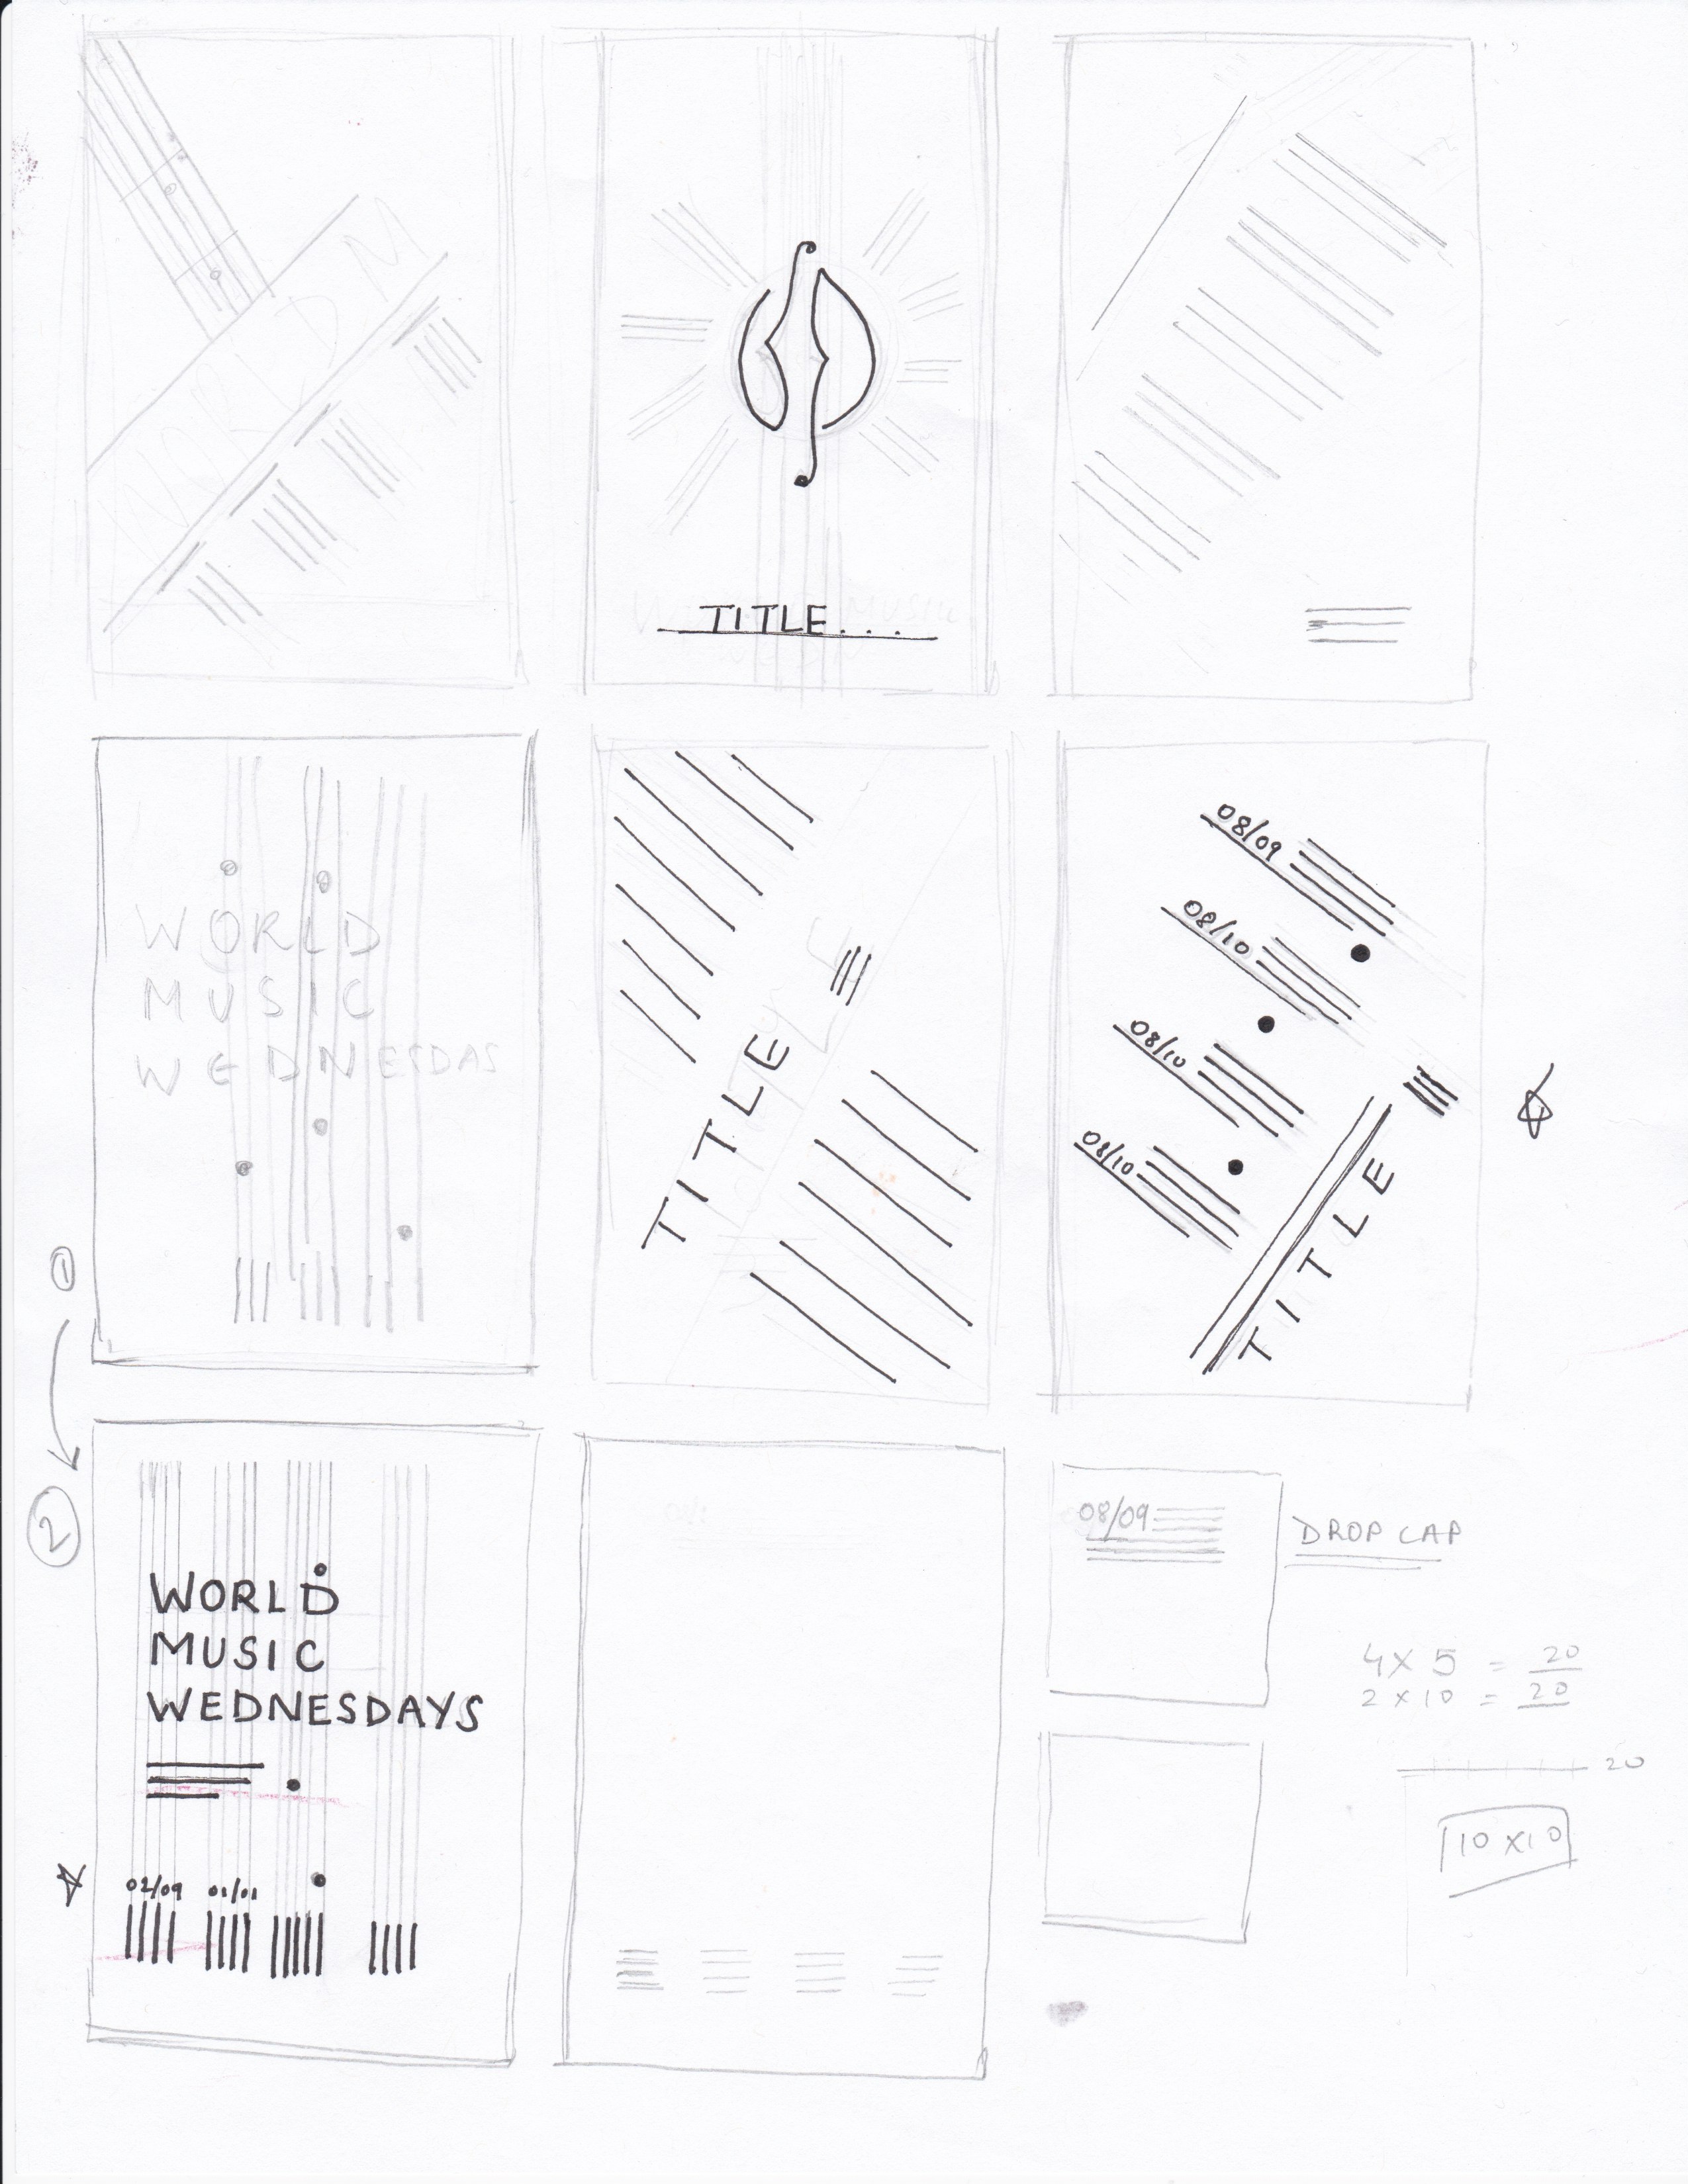 WORLD M
TITLE...
WORLD
MUSIC
WEDNESDAS
TITLE
08/09
08/10
08/10
08/10
TITLE
1
2
WORLD
MUSIC
WEDNESDAYS
02/09 01/01
08/09
DROP CAP
4 X 5 = 20
2 X 10 = 20
20
10 X 10